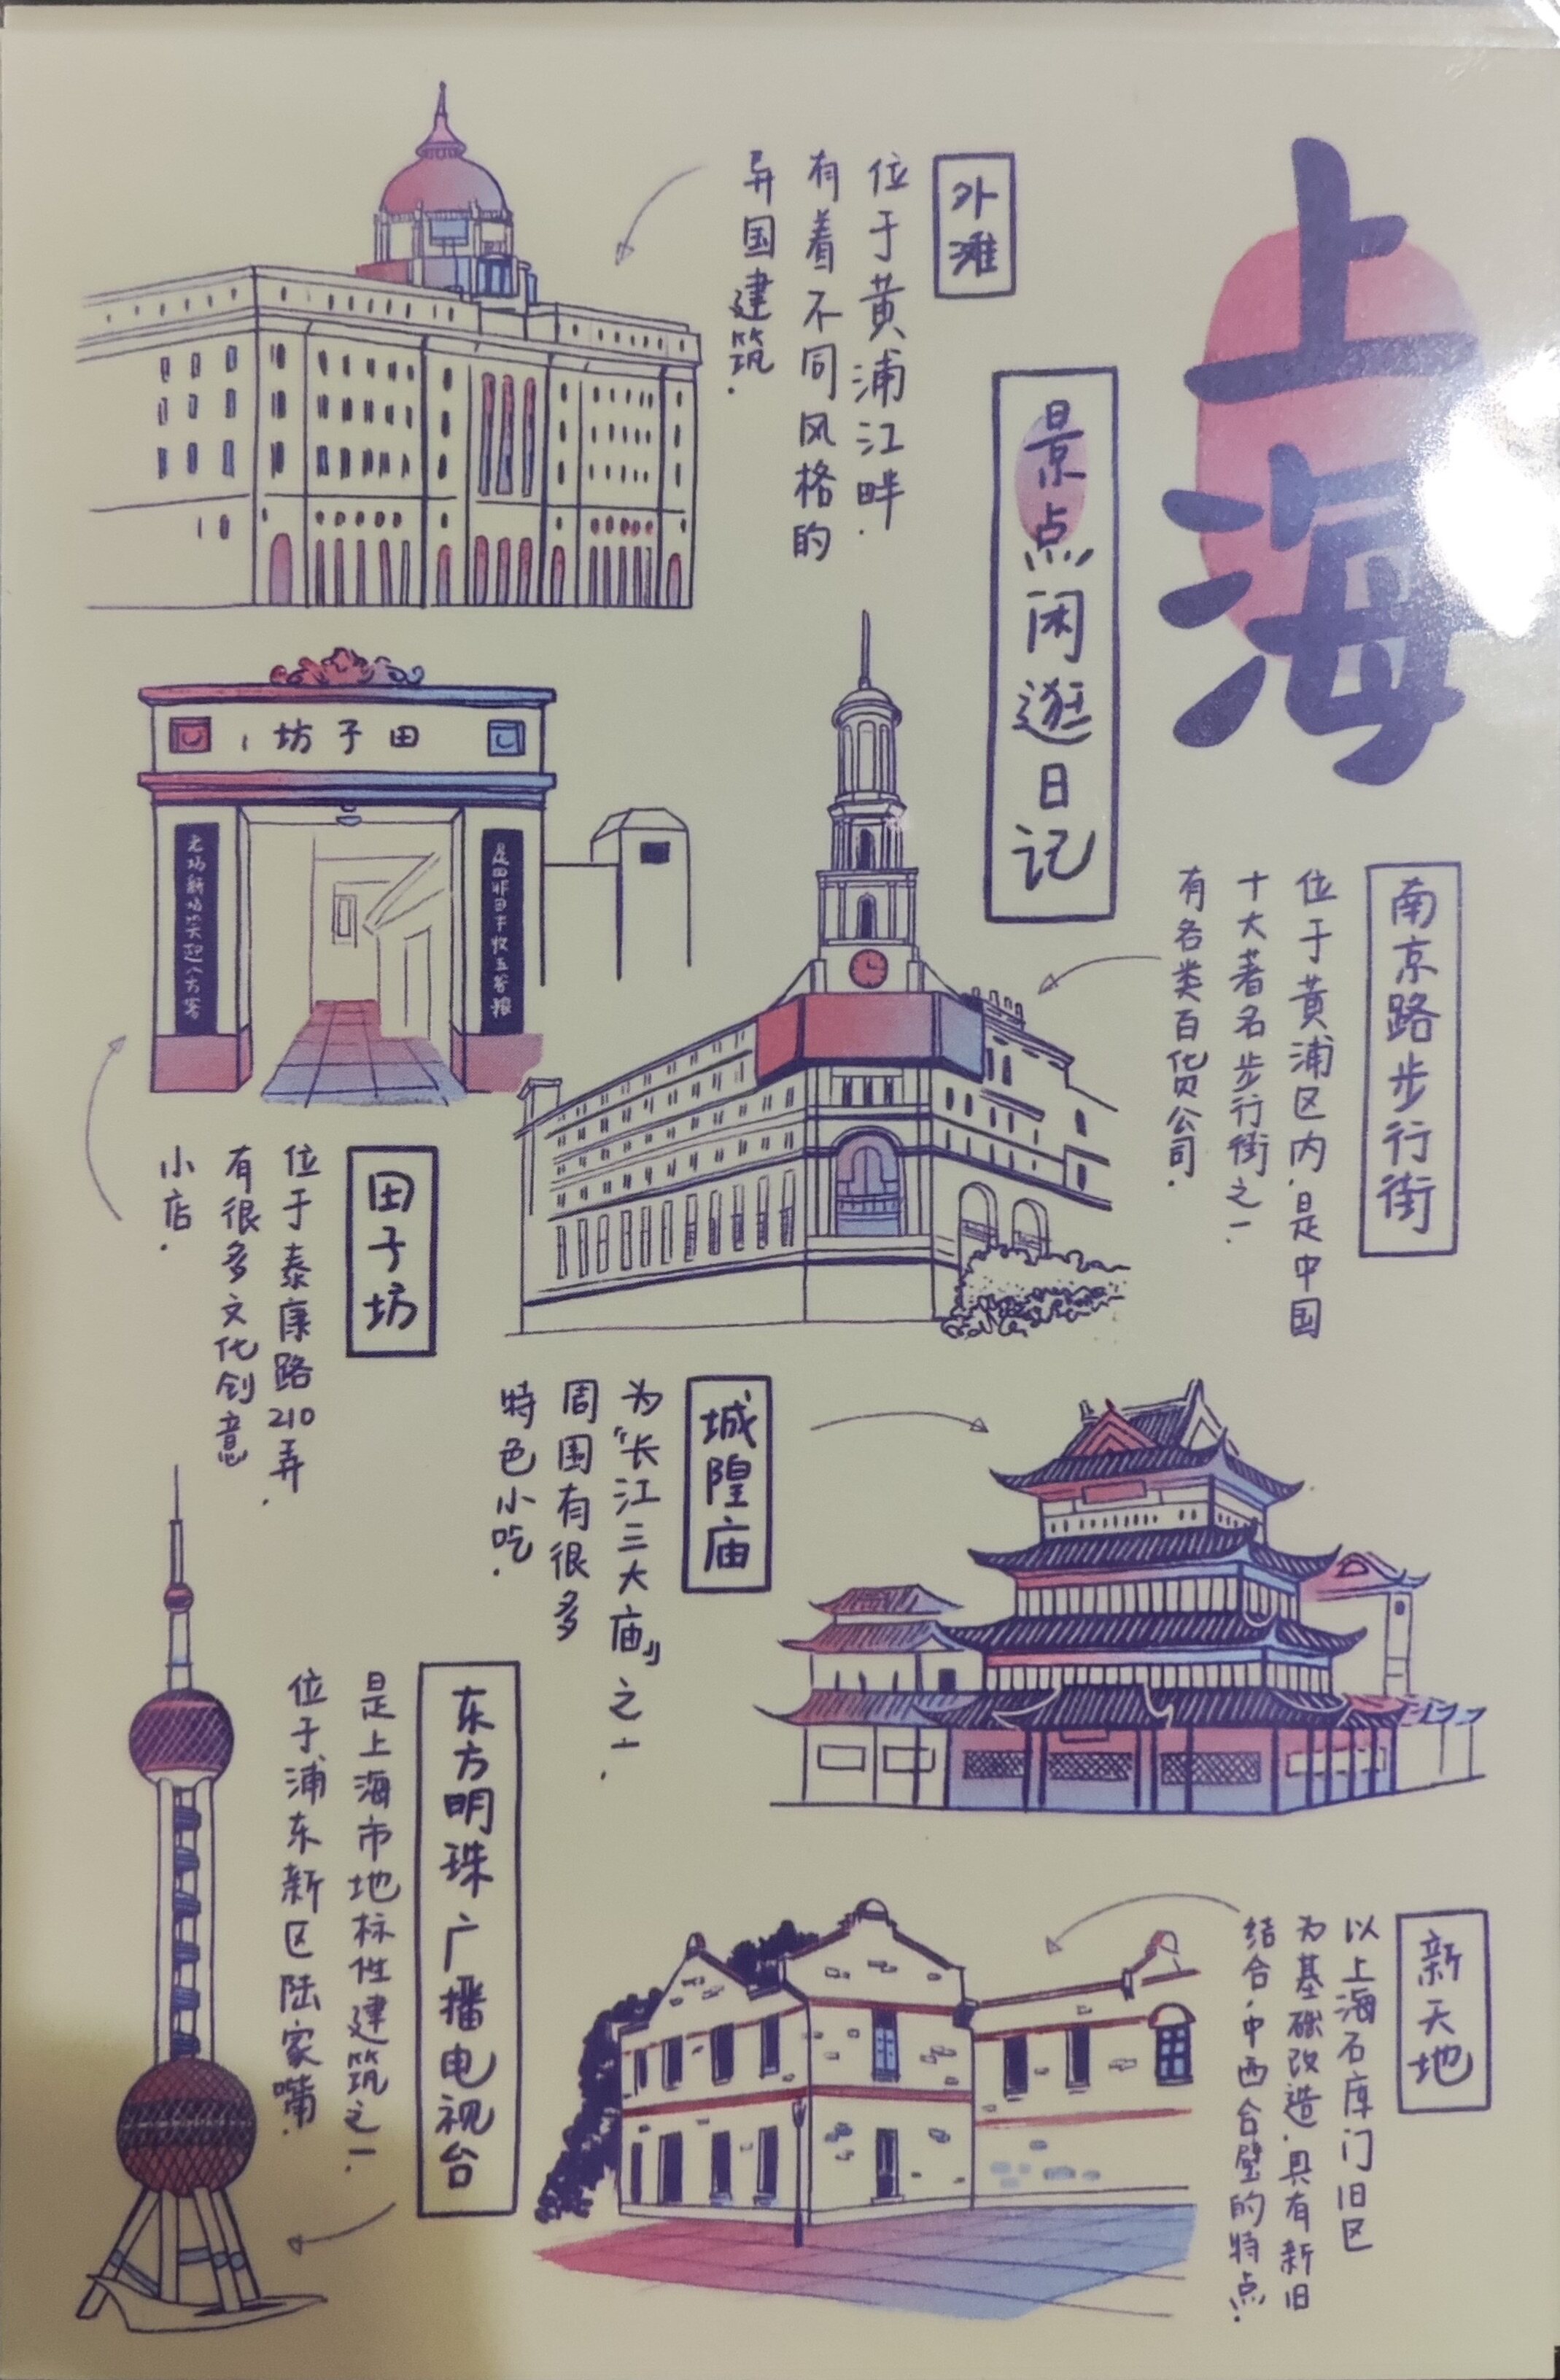 上海
景点闲逛日记
外滩
位于黄浦江畔.
有着不同风格的
异国建筑.
南京路步行街
位于黄浦区内.是中国
十大著名步行街之一.
有名类百货公司.
田子坊
田子坊
位于泰康路210弄.
有很多文化创意
小店.
城隍庙
为“长江三大庙”之一.
周围有很多
特色小吃.
东方明珠广播电视台
是上海市地标性建筑之一.
位于浦东新区陆家嘴.
新天地
以上海石库门旧区
为基础改造.具有新旧
结合.中西合璧的特点.